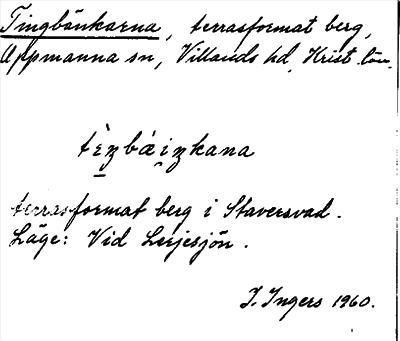 Tingbänkarna, terrasformat berg,
Oppmanna sn, Villands hd, Krist. län.
tèŋbáiŋkana
terrasformat berg i Staversvad.
Läge: Vid Lerjesjön.
I. Ingers 1960.